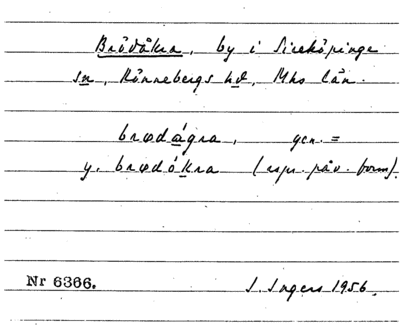 Brödåkra, by i Sireköpinge
sn, Rönnebergs hd, Mhs län.
brœdágra, gen. =
y. brœdókra (rspr. påv. form).
Nr 6366.
I. Ingers 1956.